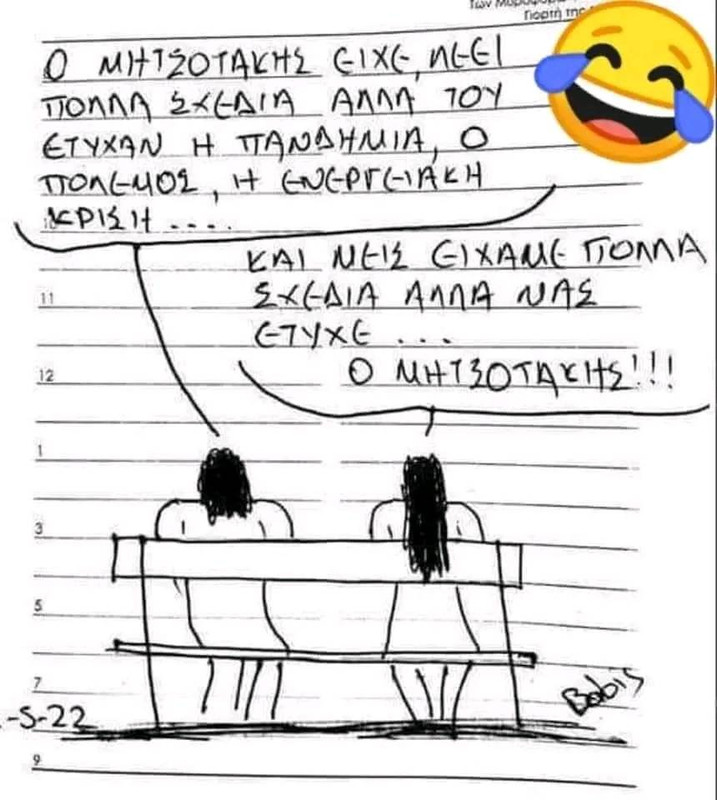 Γιορτή της
Ο ΜΗΤΣΟΤΑΚΗΣ ΕΙΧΕ, ΛΕΕΙ
ΠΟΛΛΑ ΣΧΕΔΙΑ ΑΛΛΑ ΤΟΥ
ΕΤΥΧΑΝ Η ΠΑΝΔΗΜΙΑ, Ο
ΠΟΛΕΜΟΣ, Η ΕΝΕΡΓΕΙΑΚΗ
ΚΡΙΣΗ ....
ΚΑΙ ΜΕΙΣ ΕΙΧΑΜΕ ΠΟΛΛΑ
ΣΧΕΔΙΑ ΑΛΛΑ ΜΑΣ
ΕΤΥΧΕ ...
Ο ΜΗΤΣΟΤΑΚΗΣ!!!
11
12
1
3
5
7
Bobis
-5-22
9